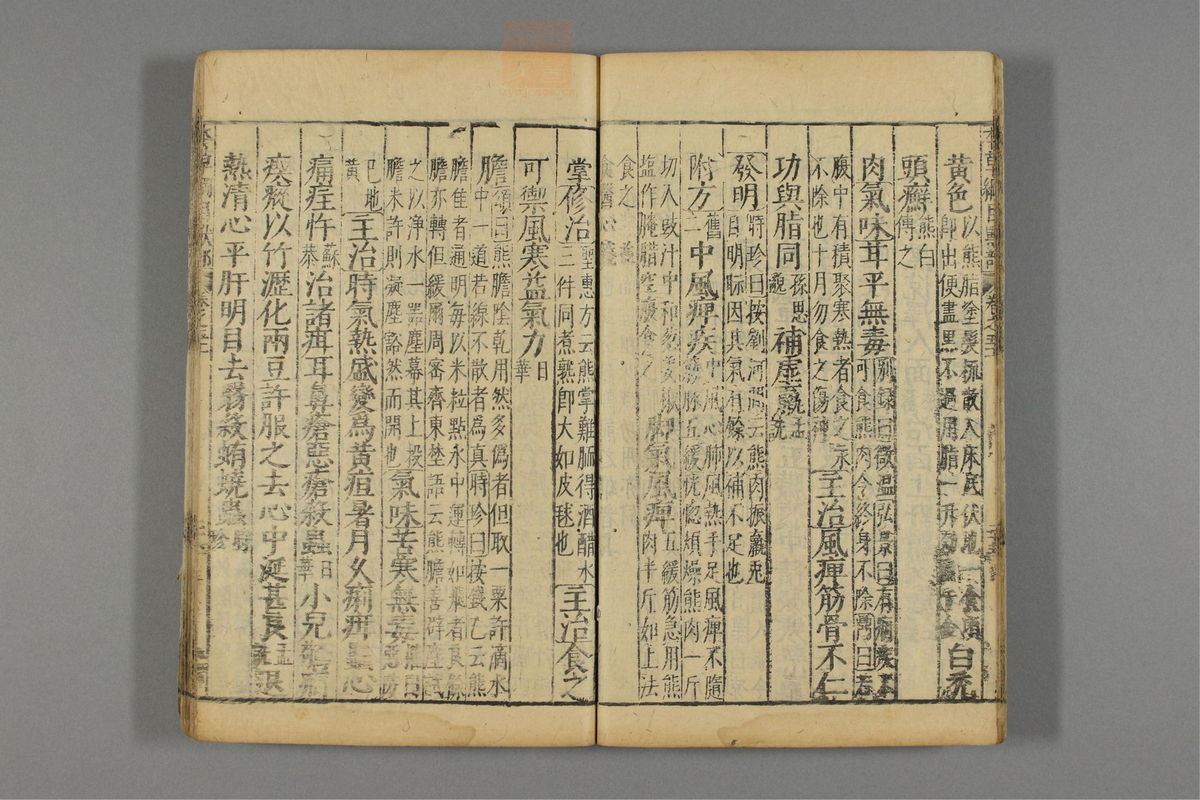 黄色以熊脂塗髮梳散入床底伏地一食頃
即出便盡黑不過用脂一升
白禿
頭癬熊白
傅之
肉氣味甘平無毒別録曰微温弘景曰有痼疾不
可食熊肉令終身不除鼎曰若
腹中有積聚寒熱者食之永
不除也十月勿食之傷神
主治風痺筋骨不仁
功與脂同孫思
邈
補虛羸孟
詵
發明時珍曰按劉河間云熊肉振羸兎
目明眎因其氣有餘以補不足也
附方舊
二
中風痺疾中風心肺風熱手足風痺不隨
筋脉五緩恍惚煩燥熊肉一斤
切入豉汁中和葱薑椒
鹽作腌腊空腹食之
脚氣風痺五緩筋急用熊
肉半斤如上法
食之
食醫心鏡
掌修治聖惠方云熊掌難胹得酒醋水
三件同煮熟即大如皮毬也
主治食之
可禦風寒益氣力日
華
膽頌曰熊膽陰乾用然多僞者但取一粟許滴水
中一道若線不散者爲真時珍曰按錢乙云熊
膽佳者通明每以米粒點水中運轉如飛者良餘
膽亦轉但緩爾周密齊東埜語云熊膽善辟塵試
之以浄水一器塵幕其上投
膽米許則凝塵豁然而開也
氣味苦寒無毒
巴地
黄
主治時氣熱盛變爲黄疸暑月久痢疳䘌心
痛疰忤蘇
恭
治諸疳耳鼻瘡惡瘡殺蟲日
華
小兒驚癇
瘈瘲以竹瀝化兩豆許服之去心中涎甚良孟
詵退
熱清心平肝明目去翳殺蚘蟯蟲時
珍